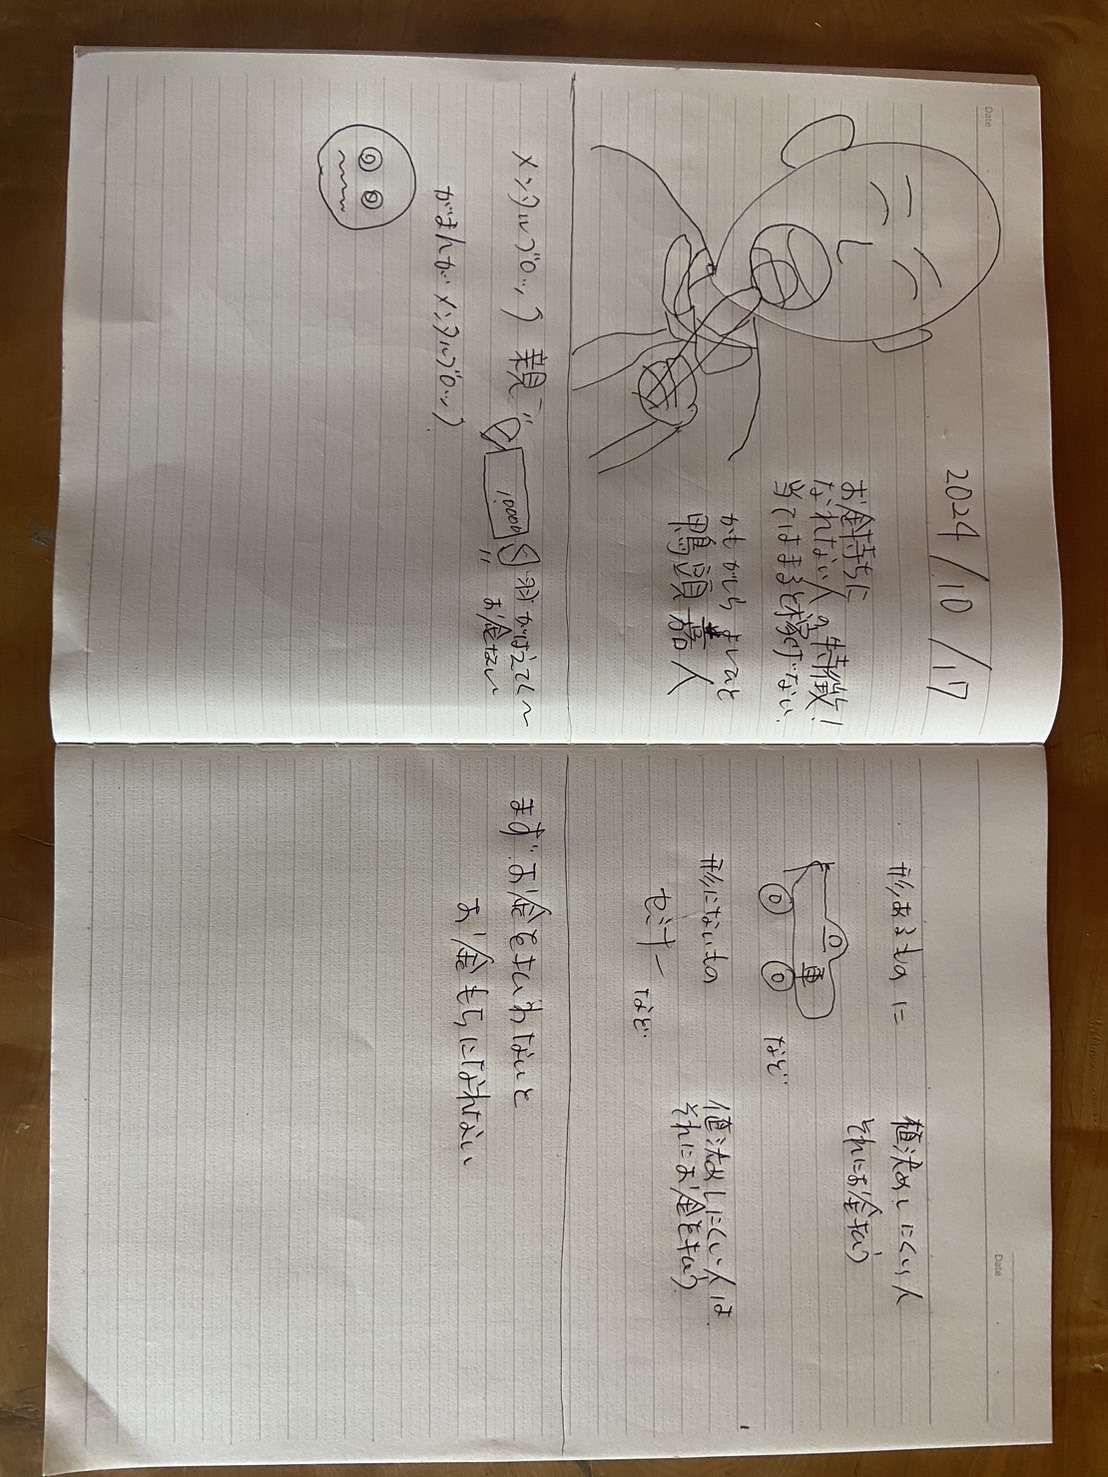 Date
2024/10/17
お金持ちに
なれない人の特徴!
当てはまると稼げない.
かもがしら よしひと
鴨頭嘉人
メンタルブロック 親
10000
羽がはえてく〜
お金ない
がまんがメンタルブロック.
Date
形あるものに
値決めしにくい人
それにお金払う
車
など
形にないもの
値決めしにくい人は
それにお金を払う
セミナー
など
まずお金を払わないと
お金もちになれない